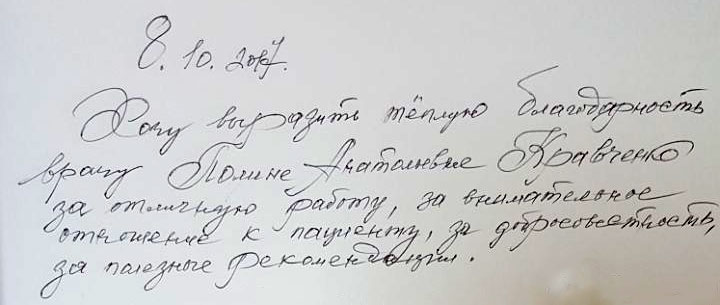 8.10.2017.
Хочу выразить тёплую благодарность
врачу Полине Анатольевне Кравченко
за отличную работу, за внимательное
отношение к пациенту, за добросовестность,
за полезные рекомендации.